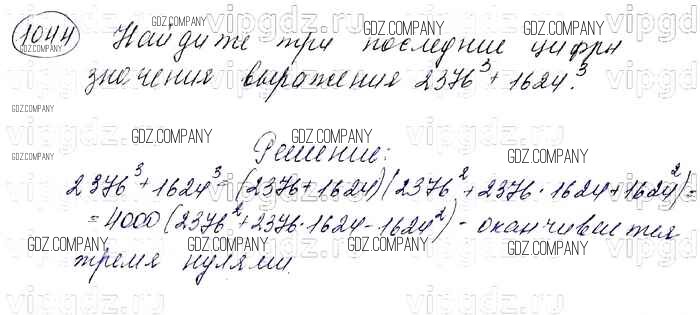 1044 Найдите три последние цифры
значения выражения 2376³ + 1624³.
Решение:
2376³ + 1624³ = (2376 + 1624)(2376² + 2376 · 1624 + 1624²) =
= 4000 (2376² + 2376 · 1624 - 1624²) - оканчивается
тремя нулями.
GDZ.COMPANY
vipgdz.ru